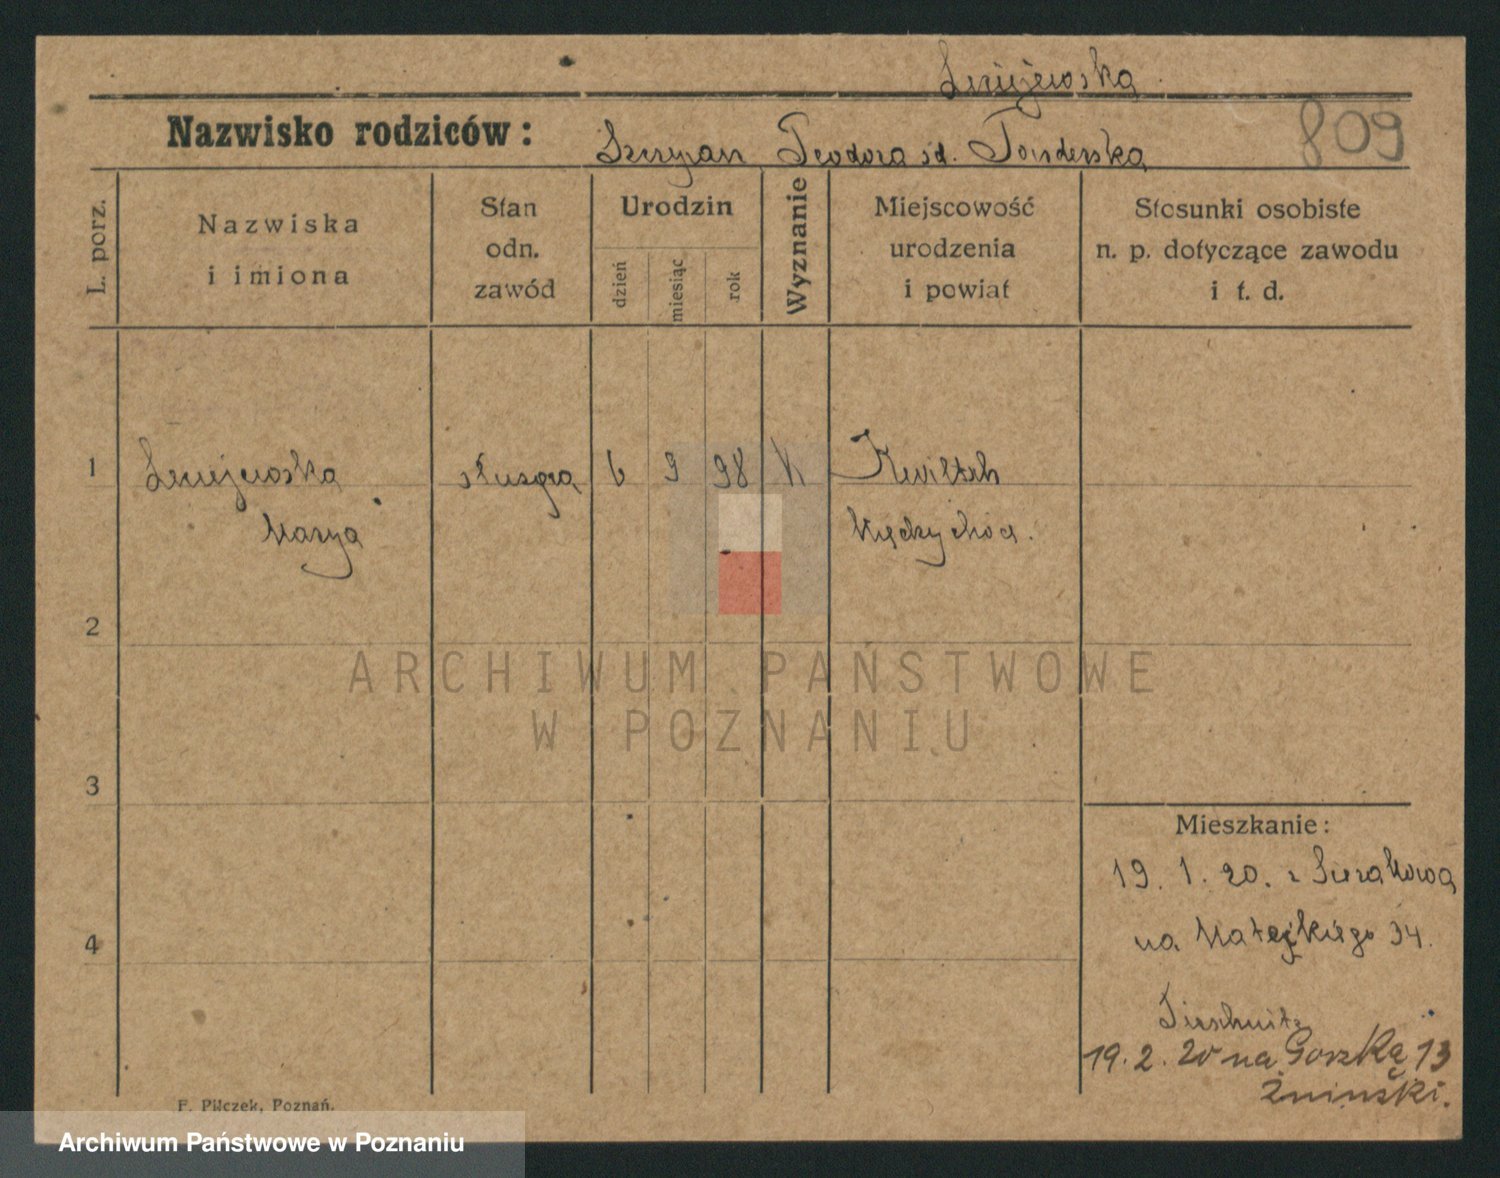 809
Nazwisko rodziców: Szczepan Teodora zd. Tonderska
L. porz.
Nazwiska i imiona
Stan odn. zawód
Urodzin
dzień
miesiąc
rok
Wyznanie
Miejscowość urodzenia i powiat
Stosunki osobiste n. p. dotyczące zawodu i t. d.
1
służąca 6 9 98 K Kwiltsch
Marya
Międzychód.
2
ARCHIWUM PAŃSTWOWE
W POZNANIU
3
Mieszkanie:
19. 1. 20. z Sierakowa
na Matejkiego 34.
4
19. 2. 20 na 13
Żniński.
F. Pilczek, Poznań.
Archiwum Państwowe w Poznaniu